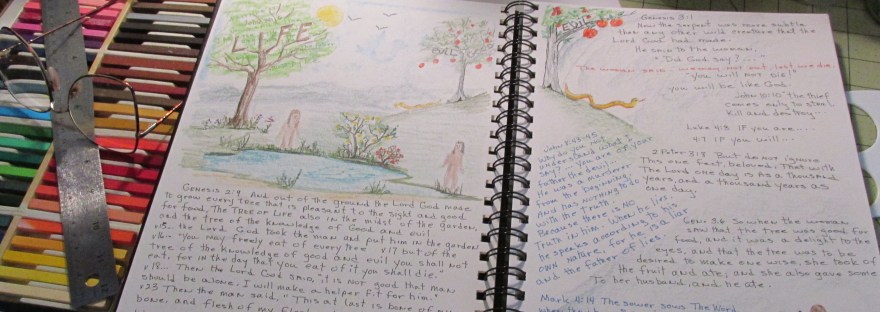 LIFE
EVIL
Genesis 2:9 And out of the ground the Lord God made
to grow every Tree that is pleasant to the sight and good
for food, The Tree of Life also in the midst of the garden,
and the tree of the knowledge of Good and evil.
v15... the Lord God took the man and put him in the garden
v16... You may freely eat of every tree v17 but of the
Tree of the knowledge of good and evil you shall not
eat, for in the day that you eat of it you shall die."
v18... Then the Lord God said, "it is not good that man
should be alone. I will make a helper fit for him."
v23 Then the man said, "This at last is bone of my
bone, and flesh of my flesh
EVIL
Genesis 3:1
Now the serpent was more subtle
than any other wild creature that the
Lord God had made.
He said to the woman,
"Did God say?...
The woman said,
"You will not die!"
you will be like God.
John 10:10 "the thief
comes only to steal
kill and destroy...
Luke 4:3 If you are...
4:7 If you will...
2 Peter 3:8 But do not ignore
This one fact, beloved, That with
The Lord one day is as a Thousand
years, and a thousand years as
one day.
John 8:43-45
Why do you not
understand what I
say? You are of your
father the devil,
He was a murderer
from the beginning,
And has nothing to do
with the truth
Because there is no
Truth in him. When he lies,
he speaks according to his
own nature, for he is a liar
and the father of lies.
Gen: 3:6 So when the woman
saw that the tree was good for
food, and it was a delight to the
eyes, and that the tree was to be
desired to make one wise, she took of
the fruit and ate; and she also gave some
To her husband, and he ate.
Mark 4:14 The sower sows The Word